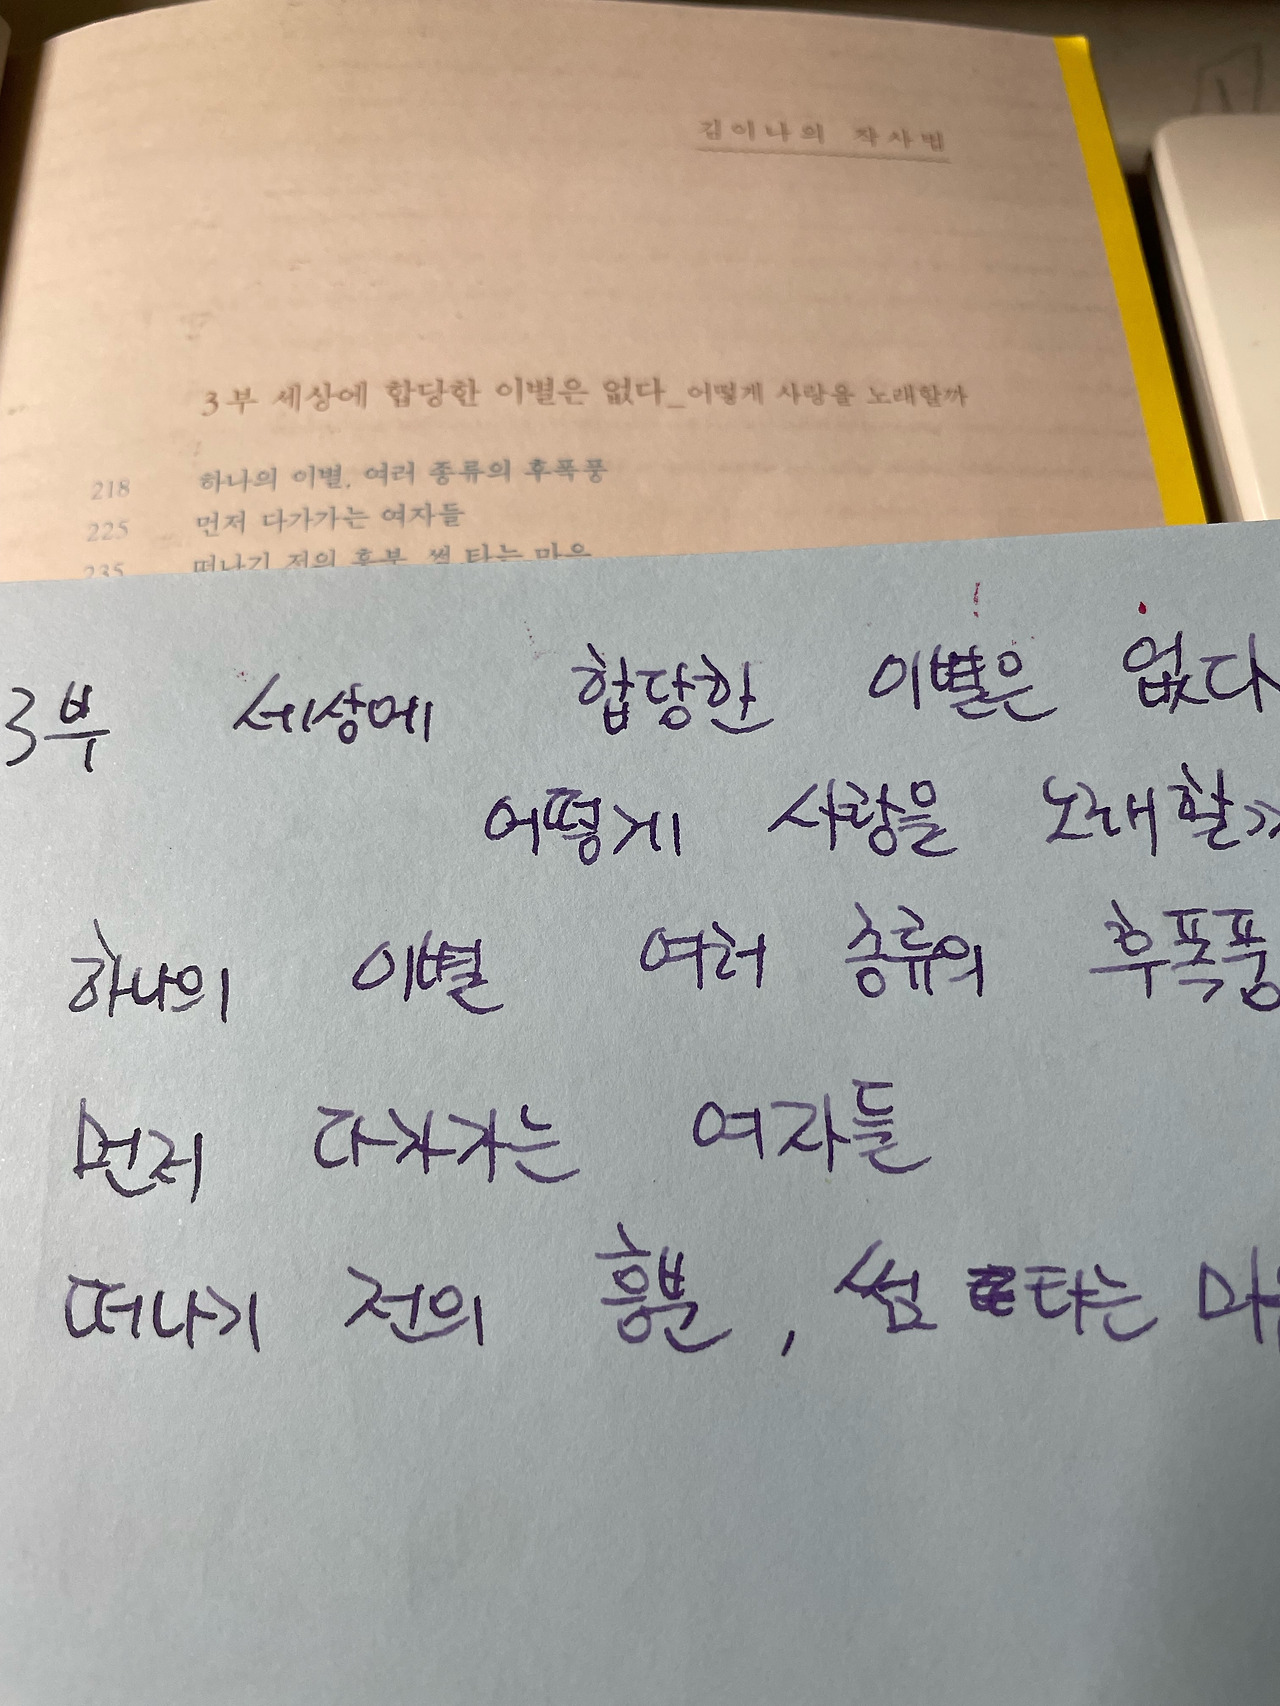 김이나의 작사법
3부 세상에 합당한 이별은 없다_어떻게 사랑을 노래할까
218 하나의 이별, 여러 종류의 후폭풍
225 먼저 다가가는 여자들
235 떠나기 전의 흥분, 썸 타는 마음
3부 세상에 합당한 이별은 없다
어떻게 사랑을 노래할
하나의 이별 여러 종류의 후폭풍
먼저 다가가는 여자들
떠나기 전의 흥분, 썸 타는